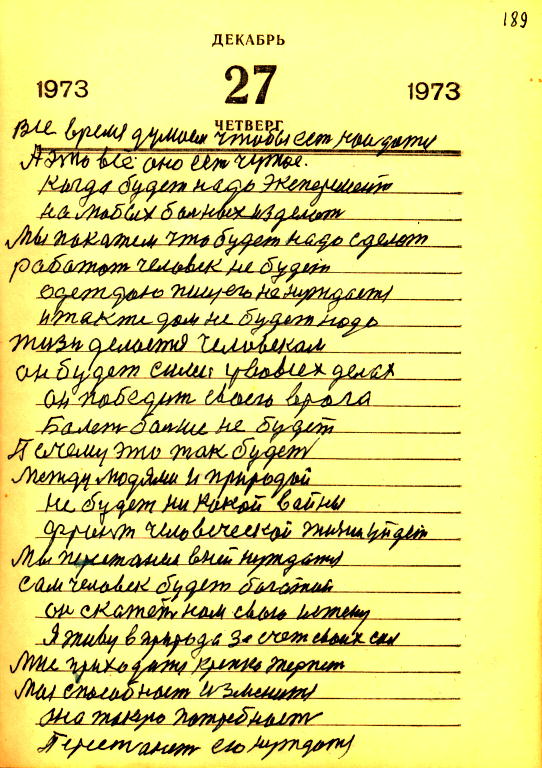 189
ДЕКАБРЬ
1973 27 1973
ЧЕТВЕРГ
Все время думаем чтобы ест находит
А это все оно ест чужое.
Когда будет надо эксперемент
на любых больных изделот
Мы покажем что будет надо сделот
работат человек не будет
одеждою пищ его не нуждаетя
и также дом не будет надо
жизн делаетя человеком
он будет силен у во всех делах
он победит своего врога
Балет болше не будет
Почему это так будет
Между людями и природой
не будет ни какой вайны
фронт человеческой жизни уйдет
Мы перестанем в ней нуждатя
Сам человек будет богатой
он скажет нам свою истену
Я живу в природа за счет своих сил
Мне приходитя крепко терпет
Моя способност изменитя
она такую потребност
Перестанет его нуждатя